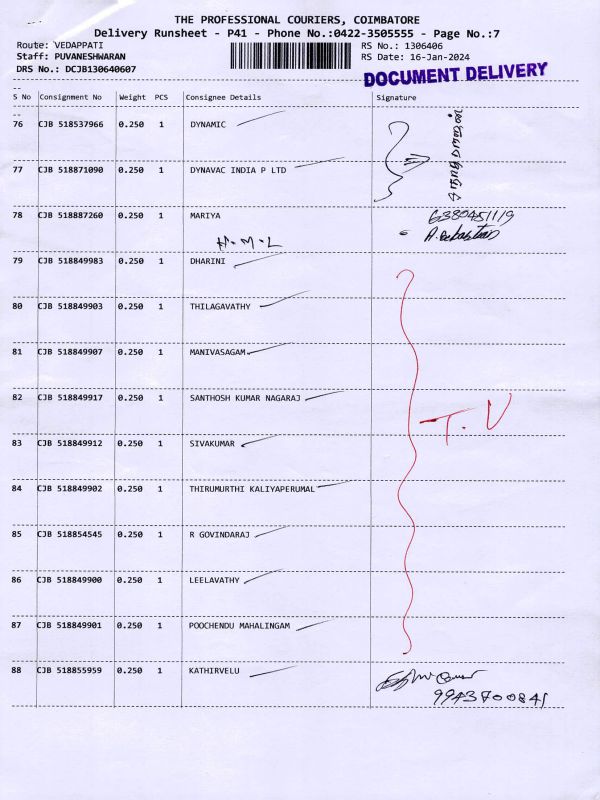 THE PROFESSIONAL COURIERS, COIMBATORE
Delivery Runsheet - P41 - Phone No.:0422-3505555 - Page No.:7
Route: VEDAPPATI RS No.: 1306406
Staff: PUVANESHWARAN RS Date: 16-Jan-2024
DRS No.: DCJB130640607
DOCUMENT DELIVERY
S No Consignment No Weight PCS Consignee Details Signature
76 CJB 518537966 0.250 1 DYNAMIC
77 CJB 518871090 0.250 1 DYNAVAC INDIA P LTD
78 CJB 518887260 0.250 1 MARIYA 6380451119
H.M.L
79 CJB 518849983 0.250 1 DHARINI
80 CJB 518849903 0.250 1 THILAGAVATHY
81 CJB 518849907 0.250 1 MANIVASAGAM
82 CJB 518849917 0.250 1 SANTHOSH KUMAR NAGARAJ
T.V
83 CJB 518849912 0.250 1 SIVAKUMAR
84 CJB 518849902 0.250 1 THIRUMURTHI KALIYAPERUMAL
85 CJB 518854545 0.250 1 R GOVINDARAJ
86 CJB 518849900 0.250 1 LEELAVATHY
87 CJB 518849901 0.250 1 POOCHENDU MAHALINGAM
88 CJB 518855959 0.250 1 KATHIRVELU
9943700841